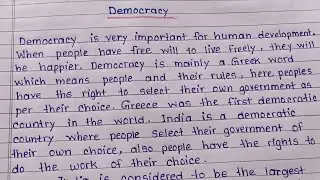 Democracy
Democracy is very important for human development.
When people have free will to live freely, they will
be happier. Democracy is mainly a Greek word
which means people and their rules, here peoples
have the right to select their own government as
per their choice. Greece was the first democratic
country in the world. India is a democratic
country where people select their government of
their own choice, also people have the rights to
do the work of their choice.
India is considered to be the largest